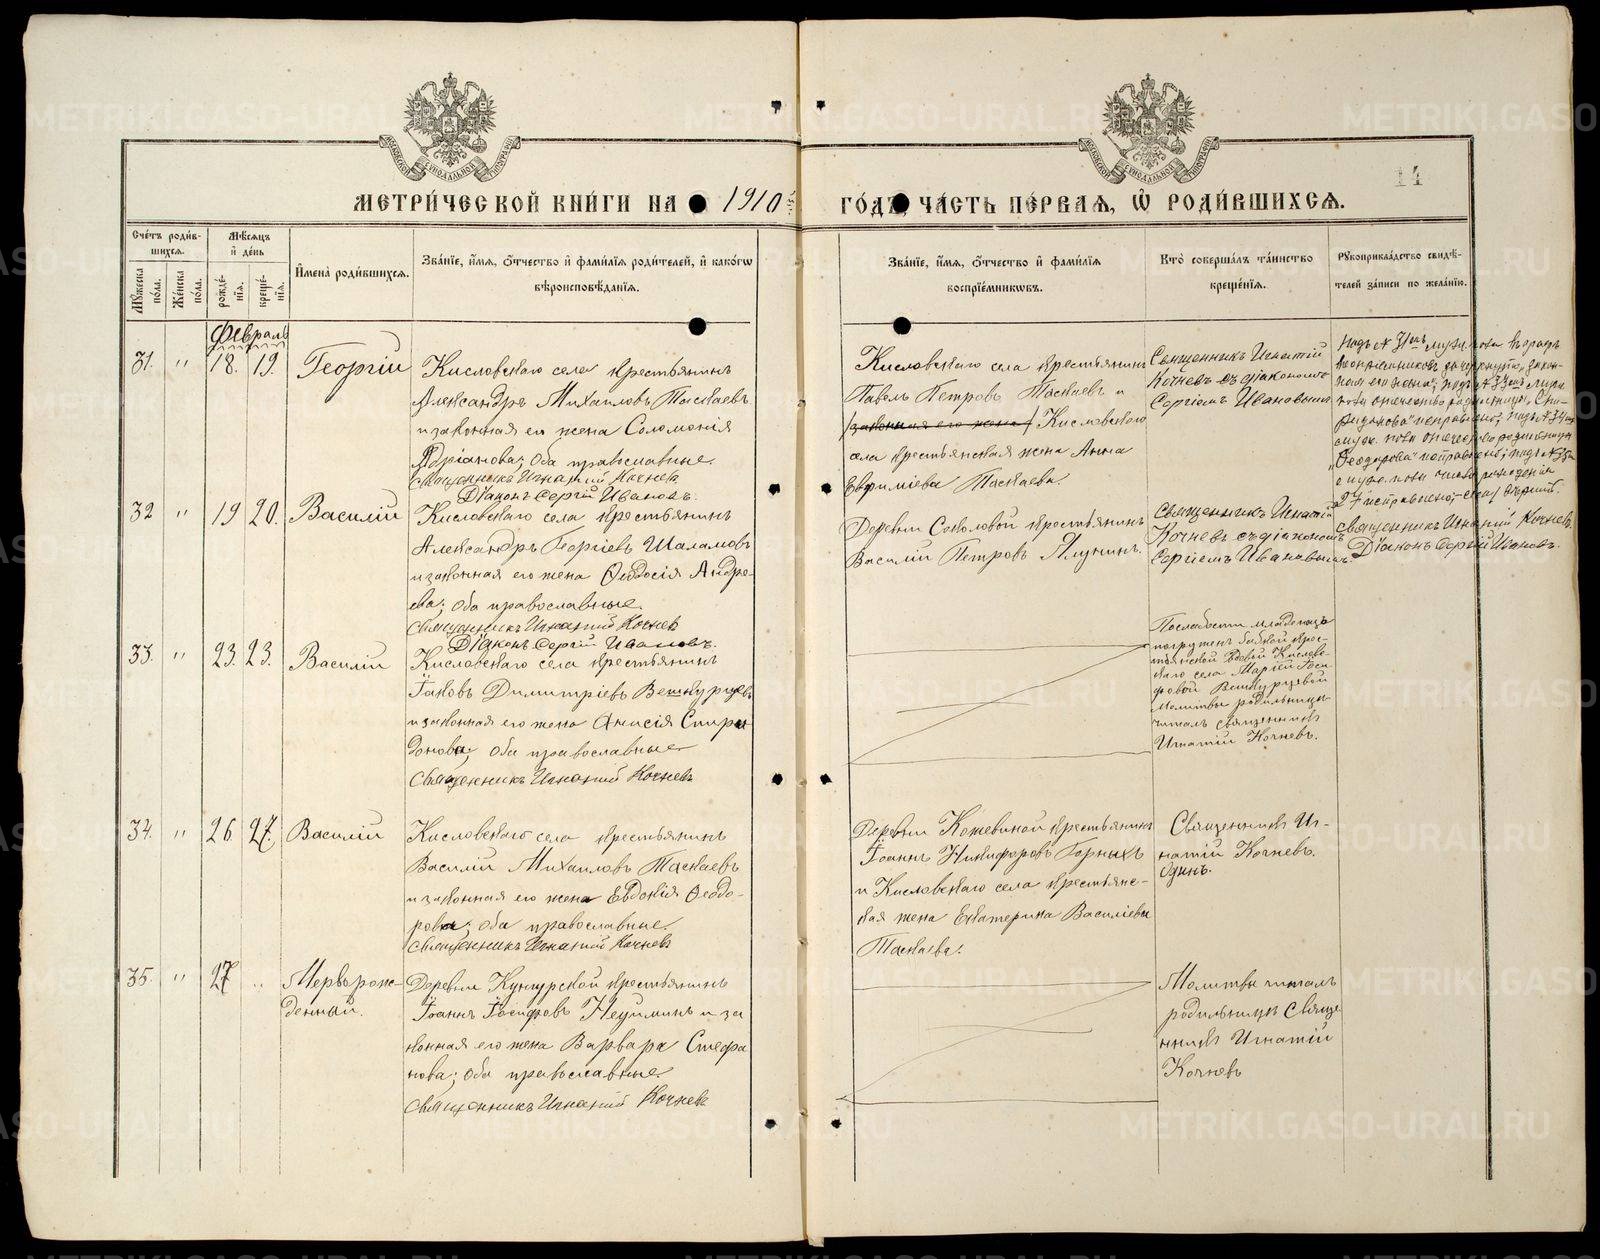 МЕТРИ́ЧЕСКОЙ КНИ́ГИ НА 1910 й
ГО́ДЪ, ЧА́СТЬ ПЕ́РВАЯ, Ѿ РОДИ́ВШИХСѦ.
14
МОСКОВСКОЙ СѴНОДАЛЬНОЙ ТИПОГРАФІИ
МОСКОВСКОЙ СѴНОДАЛЬНОЙ ТИПОГРАФІИ
Сче́тъ роди́в-
шихсѧ.
Мѣ́сѧцъ
и҆ де́нь
Мꙋ́жеска
по́ла.
Же́нска
по́ла.
рожде́-
нїѧ.
креще́-
нїѧ.
И҆мена̀ роди́вшихсѧ.
Зва́нїе, и҆́мѧ, ѻ҆́тчество и҆ фамі́лїѧ роди́телей, и҆ како́гѡ
вѣроисповѣ́данїѧ.
Зва́нїе, и҆́мѧ, ѻ҆́тчество и҆ фамі́лїѧ
воспрїе́мникѡвъ.
Кто̀ соверша́лъ та́инство
креще́нїѧ.
Рꙋкоприкла́дство свидѣ́-
телей за́писи по жела́нїю.
Февраль
31. " 18. 19. Георгій
Кисловскаго села крестьянинъ
Александръ Михаиловъ Таскаевъ
и законная его жена Соломонія
Адріанова; оба православные.
Священникъ Игнатій Кочневъ
Діаконъ Сергій Ивановъ.
Кисловскаго села крестьянинъ
Павелъ Петровъ Таскаевъ и
/законная его жена/ Кисловскаго
села крестьянская жена Анна
Евфиміева Таскаева.
Священникъ Игнатій
Кочневъ съ діакономъ
Сергіемъ Ивановымъ
Подъ № 31емъ муж. пола въ графѣ
воспріемниковъ зачеркнуто „закон-
ная его жена"; подъ № 33емъ муж.
пола отчество родильницы „Спи-
ридонова" исправлено; подъ № 34 емъ
муж. пола отчество родильницы
„Ѳеодорова" исправлено; подъ № 35 м
муж. пола число рожденія
27 исправлено,
Священникъ Игнатій Кочневъ.
Діаконъ Сергій Ивановъ.
32 " 19 20. Василій
Кисловскаго села крестьянинъ
Александръ Георгіевъ Шаламовъ
и законная его жена Ѳеодосія Андре-
ева; оба православные.
Священникъ Игнатій Кочневъ
Діаконъ Сергій Ивановъ.
Деревни Соколовой крестьянинъ
Василій Петровъ Ялунинъ.
Священникъ Игнатій
Кочневъ съ діакономъ
Сергіемъ Ивановымъ.
33. " 23. 23. Василій
Кисловскаго села крестьянинъ
Іаковъ Димитріевъ Вешкурцевъ
и законная его жена Анисія Спири
донова; оба православные
Священникъ Игнатій Кочневъ
По слабости младенца
погруженъ бабкой крес-
тьянской вдовой Кисловс-
каго села Маріей Іоси-
фовой Вешкурцевой
Молитвы родильницы
читалъ священникъ
Игнатій Кочневъ.
34. " 26 27. Василій
Кисловскаго села крестьянинъ
Василій Михаиловъ Таскаевъ
и законная его жена Евдокія Ѳеодо-
рова; оба православные.
Священникъ Игнатій Кочневъ
Деревни Кожевиной крестьянинъ
Іоаннъ Никифоровъ Горныхъ
и Кисловскаго села крестьянс-
кая жена Екатерина Василіева
Таскаева.
Священникъ Иг-
натій Кочневъ.
Одинъ.
35. " 27 " Мерворож-
денный.
Деревни Кунгурской крестьянинъ
Іоаннъ Іосифовъ Неуйминъ и за
конная его жена Варвара Стефа
нова; оба православные.
Священникъ Игнатій Кочневъ
Молитвы читалъ
родильницѣ Свяще
нникъ Игнатій
Кочневъ
METRIKI.GASO-URAL.RU